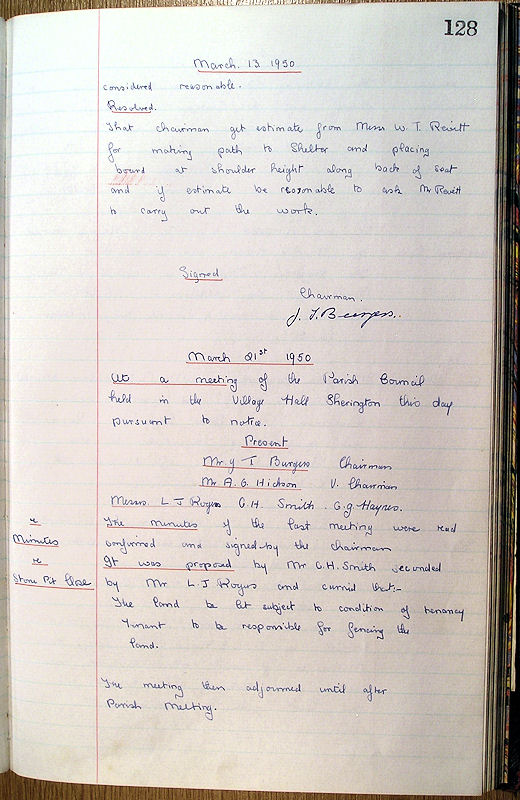 128
March. 13. 1950
considered reasonable.
Resolved.
That chairman get estimate from Messrs W. T. Revitt
for making path to Shelter and placing
board at shoulder height along back of seat
and if estimate be reasonable to ask Mr Revitt
to carry out the work.
Signed
Chairman.
J. T. Burgess.
March 21st 1950
At a meeting of the Parish Council
held in the Village Hall Sherington this day
pursuant to notice.
Present
Mr. J T Burgess Chairman
Mr A. G. Hickson V. Chairman
Messrs. L J Rogers C.H. Smith. C.G. Haynes.
re
Minutes
The minutes of the last meeting were read
confirmed and signed by the chairman
re
Stone Pit Close
It was proposed by Mr C.H. Smith seconded
by Mr L. J Rogers and carried that:-
The land be let subject to condition of tenancy
Tenant to be responsible for fencing the
land.
The meeting then adjourned until after
Parish Meeting.